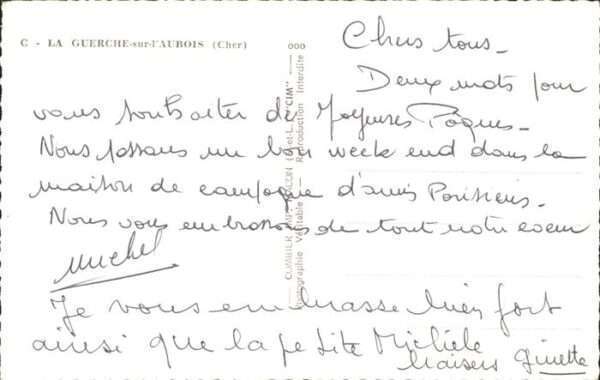 C - LA GUERCHE-sur-l'AUBOIS (Cher)
000
Chers tous -
Deux mots pour
vous souhaiter de Joyeuses Pâques -
Nous passons un bon week end dans la
maison de campagne d'amis Parisiens.
Nous vous embrassons de tout notre coeur
Michel
Je vous embrasse bien fort
ainsi que la petite Michèle
baisers Ginette
COMBIER IMP. MACON (S.-et-L.) "CIM"
Photographie Véritable - Reproduction Interdite